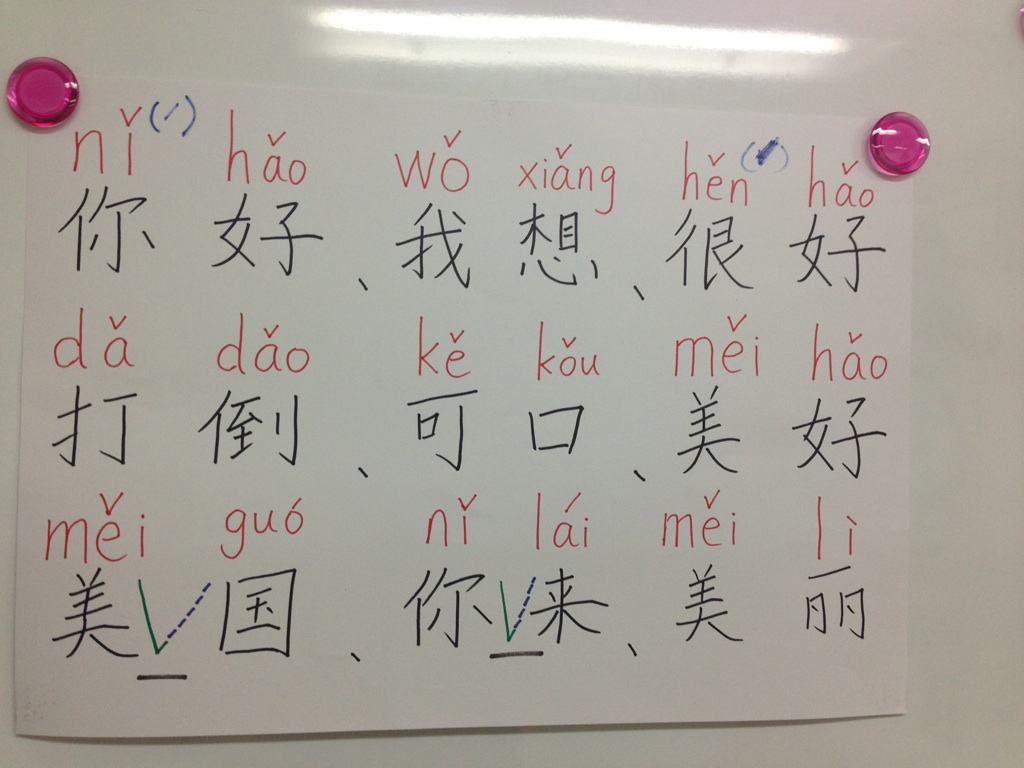 nǐ(ˊ) hǎo wǒ xiǎng hěn(ˊ) hǎo
你 好、我 想、很 好
dǎ dǎo kě kǒu měi hǎo
打 倒、可 口、美 好
měi guó nǐ lái měi lì
美 国、你 来、美 丽